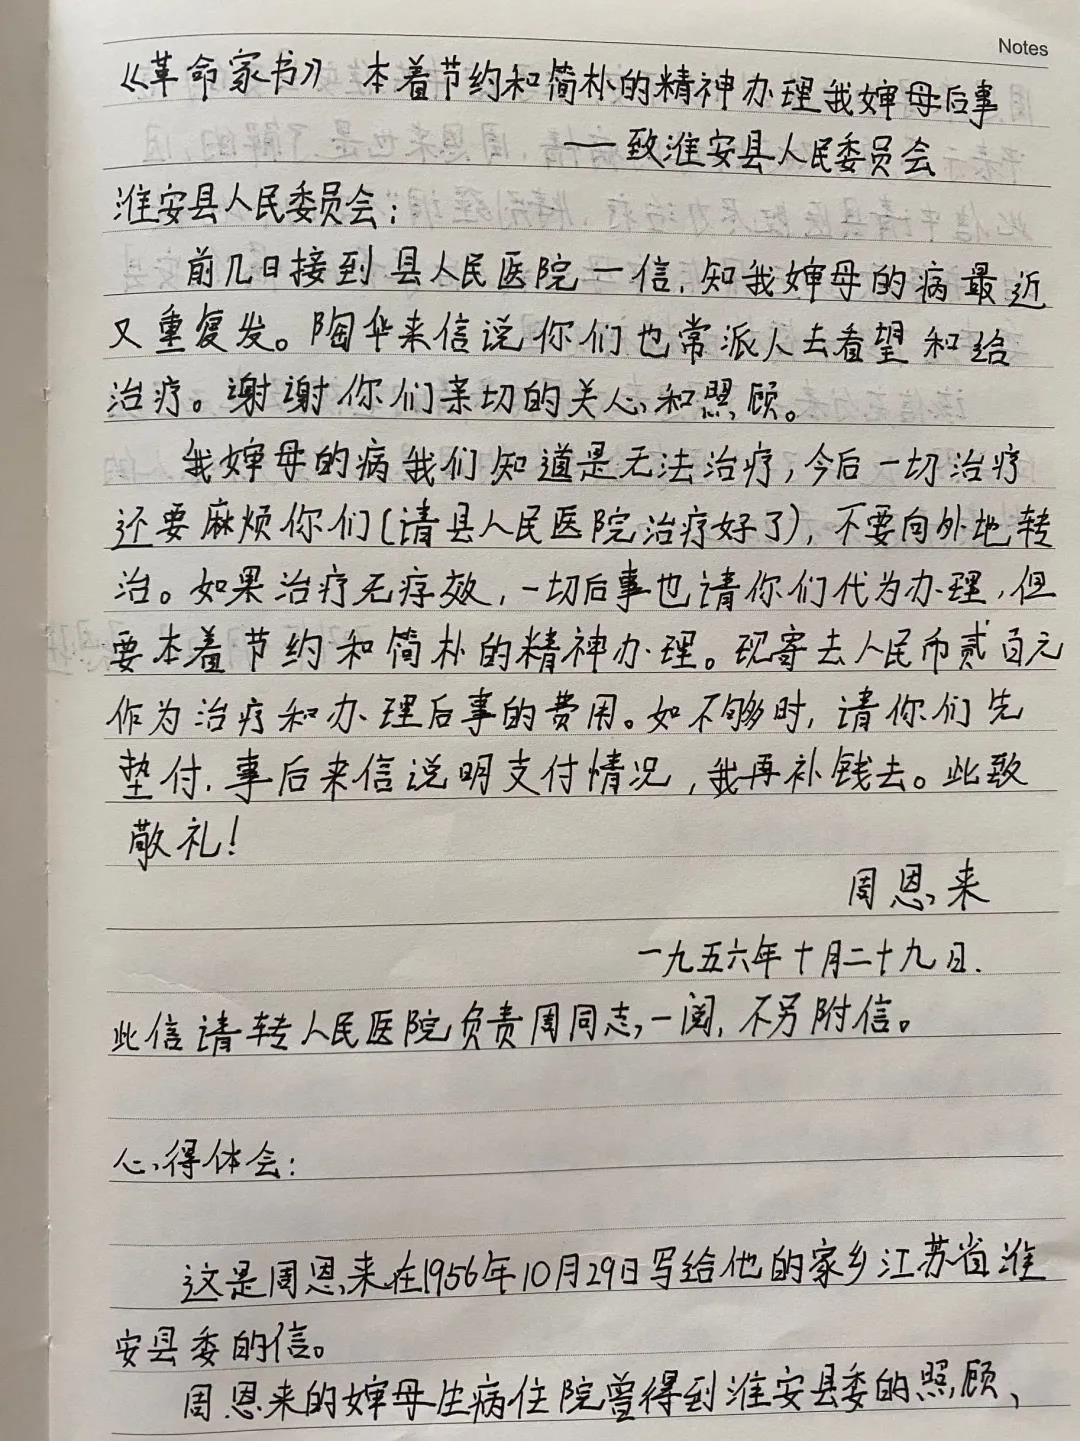 Notes
《革命家书》 本着节约和简朴的精神办理我婶母后事
——致淮安县人民委员会
淮安县人民委员会：
前几日接到县人民医院一信，知我婶母的病最近
又重复发。陶华来信说你们也常派人去看望和给
治疗。谢谢你们亲切的关心和照顾。
我婶母的病我们知道是无法治疗，今后一切治疗
还要麻烦你们（请县人民医院治疗好了），不要向外地转
治。如果治疗无效，一切后事也请你们代为办理，但
要本着节约和简朴的精神办理。现寄去人民币贰百元
作为治疗和办理后事的费用。如不够时，请你们先
垫付，事后来信说明支付情况，我再补钱去。此致
敬礼！
周恩来
一九五六年十月二十九日.
此信请转人民医院负责周同志一阅，不另附信。
心得体会：
这是周恩来在1956年10月29日写给他的家乡江苏省淮
安县委的信。
周恩来的婶母生病住院曾得到淮安县委的照顾、